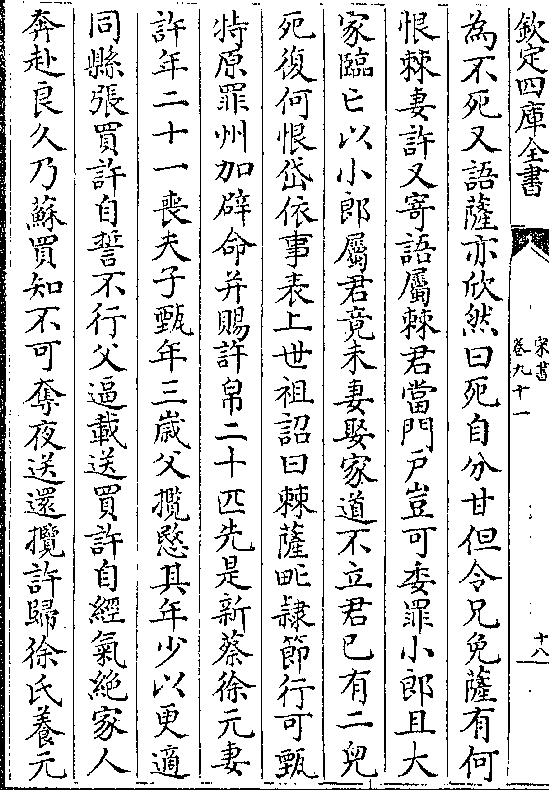 欽定四庫全書
宋書
卷九十一
十八
為不死又語薩亦欣然曰死自分甘但令兄免薩有何
恨棘妻許又寄語屬棘君當門戶豈可委罪小郎且大
家臨亡以小郎屬君竟未妻娶家道不立君已有二兒
死復何恨岱依事表上世祖詔曰棘薩甿隷節行可甄
特原罪州加辟命并賜許帛二十匹先是新蔡徐元妻
許年二十一喪夫子甄年三歲父攬愍其年少以更適
同縣張買許自誓不行父逼載送買許自經氣絶家人
奔赴良久乃蘇買知不可奪夜送還攬許歸徐氏養元